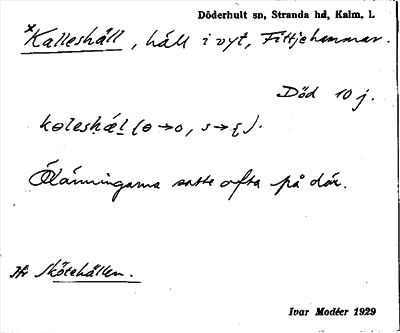 Döderhult sn, Stranda hd, Kalm. l.
*Kalleshäll, häll i vyt, Fittjehammar.
Död 10 j.
kɵleshæl (ɵ→o, s→ʃ).
Ölänningarna satte ofta på där.
Jfr Skötehällen.
Ivar Modéer 1929